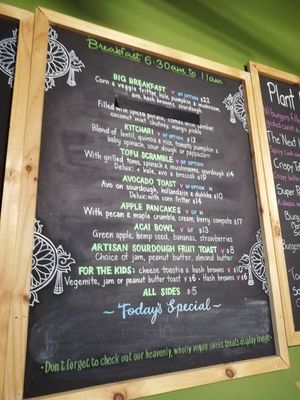 Breakfast 6:30am to 11am
BIG BREAKFAST V GF OPTION $22
Corn & veggie fritter, kale, pumpkin & mushroom,
avo, hash browns, sourdough
Filled with spiced potato, comes with
coconut mint chutney, mango pickle
KITCHARI V GF OPTION $13
Blend of lentil, quinoa & rice, tomato, pumpkin &
baby spinach, sour dough or pappadum
TOFU SCRAMBLE V GF OPTION
With grilled toms, spinach & mushrooms, sourdough $14
Deluxe: + kale, avo & broccoli $19
AVOCADO TOAST V GF OPTION
Avo on sourdough, hollandaise & dukkha $10
Deluxe: with corn fritter $14
APPLE PANCAKES V GF N
With pecan & maple crumble, cream, berry compote $17
ACAI BOWL V GF $13
Green apple, hemp seed, bananas, strawberries
ARTISAN SOURDOUGH FRUIT TOAST V $8
Choice of jam, peanut butter, almond butter
FOR THE KIDS: cheese toastie & hash browns V $10
Vegemite, jam or peanut butter toast V $6 · Hash browns V $6
ALL SIDES $5
~ Today's Special ~
· Don't forget to check out our heavenly, wholly vegan sweet treats display fridge ·
Plant
The Next
Crispy